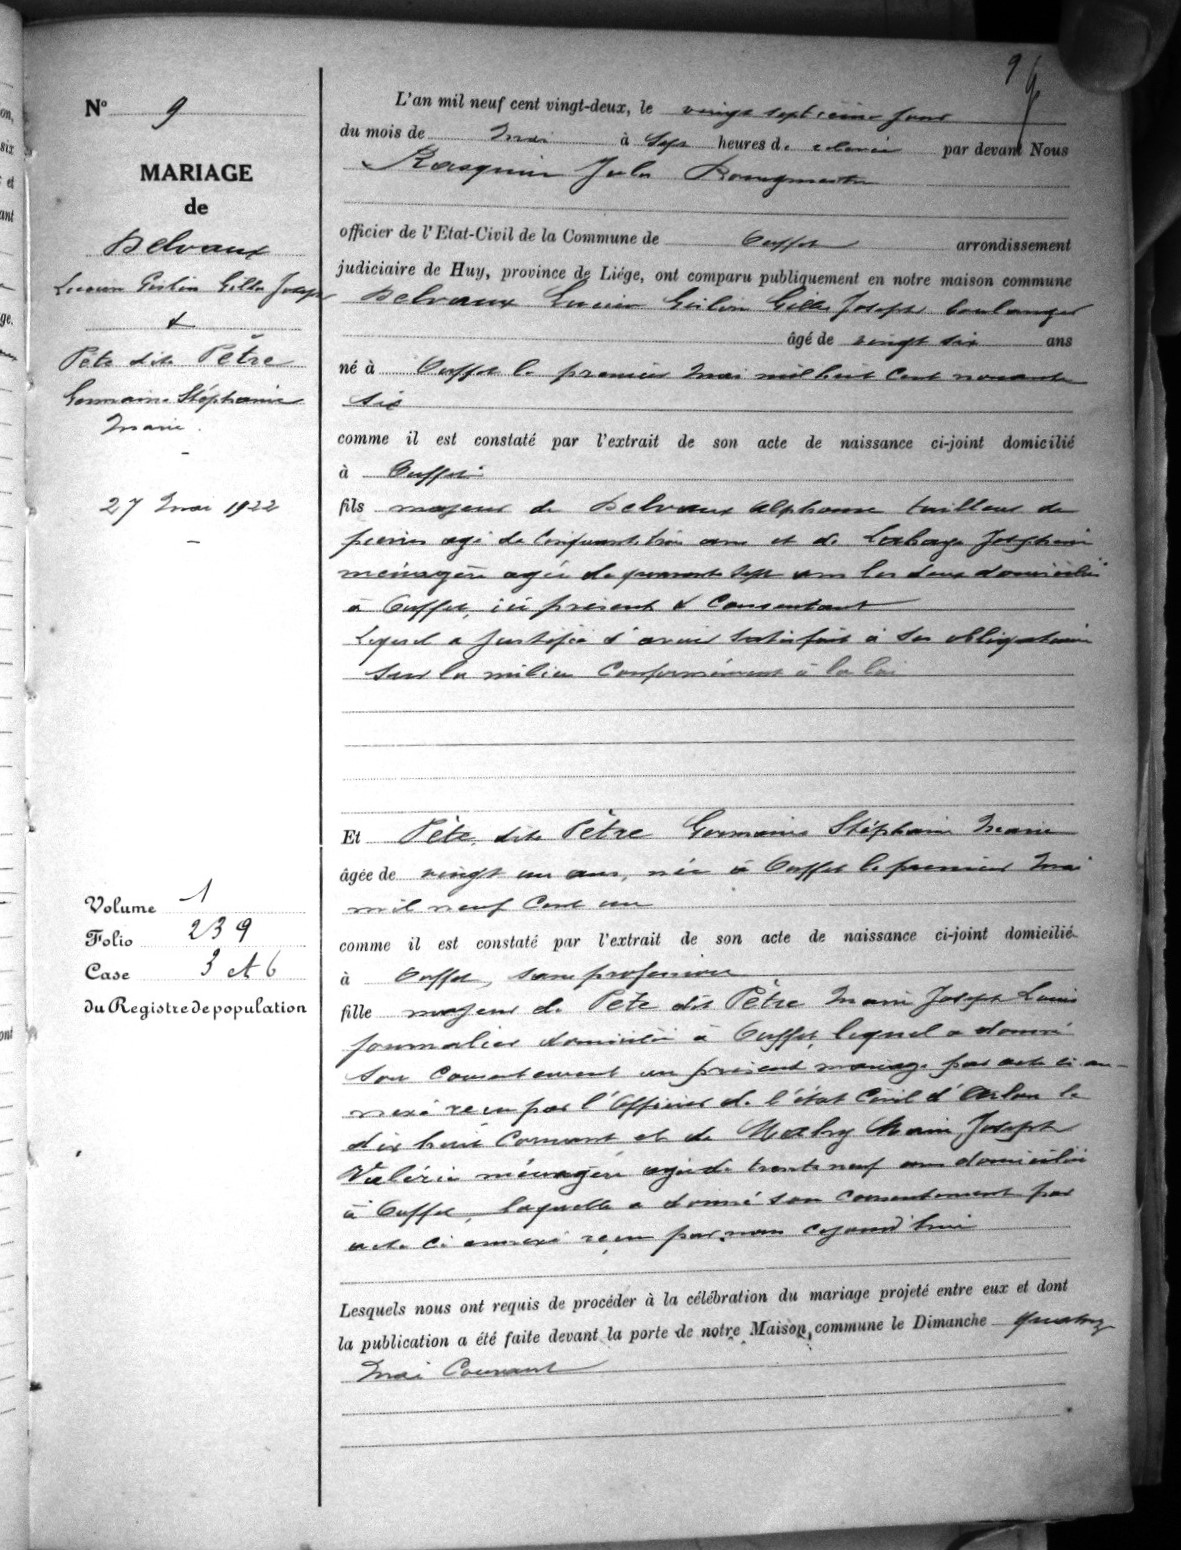 9
N° 9
MARIAGE
de
Delvaux
Lucien Gislin Gilles Joseph
&
Pête dite Pêtre
Germaine Stéphanie
Marie.
27 Mai 1922
Volume 1
Folio 239
Case 3 et 6
du Registre de population
L'an mil neuf cent vingt-deux, le vingt septième jour
du mois de Mai à sept heures de relevée par devant Nous
Rasquin Jules Bourgmestre
officier de l'Etat-Civil de la Commune de Ouffet arrondissement
judiciaire de Huy, province de Liége, ont comparu publiquement en notre maison commune
Delvaux Lucien Gislin Gilles Joseph boulanger
âgé de vingt six ans
né à Ouffet le premier Mai mil huit cent nonante
six
comme il est constaté par l'extrait de son acte de naissance ci-joint domicilié
à Ouffet
fils majeur de Delvaux Alphonse tailleur de
pierres agé de cinquante trois ans et de Labaye Joséphine
ménagère agée de quarante sept ans les deux domiciliés
à Ouffet, ici présent & consentant
Lequel a justifié d'avoir satisfait à ses obligations
sur la milice conformément à la loi
Et Pête dite Pêtre Germaine Stéphanie Marie
âgée de vingt un ans, née à Ouffet le premier Mai
mil neuf cent un
comme il est constaté par l'extrait de son acte de naissance ci-joint domicilié
à Ouffet, sans profession
fille majeur de Pête dit Pêtre Marie Joseph Louis
journalier domicilié à Ouffet lequel a donné
son consentement au présent mariage par acte ci an-
nexé reçu par l'Officier de l'état Civil d'Arlon le
dix huit courant et de Marie Joseph
Valérie ménagère agée de trente neuf ans domiciliée
à Ouffet, laquelle a donné son consentement par
acte ci annexé reçu par nous cejourd'hui
Lesquels nous ont requis de procéder à la célébration du mariage projeté entre eux et dont
la publication a été faite devant la porte de notre Maison commune le Dimanche quatorze
Mai Courant